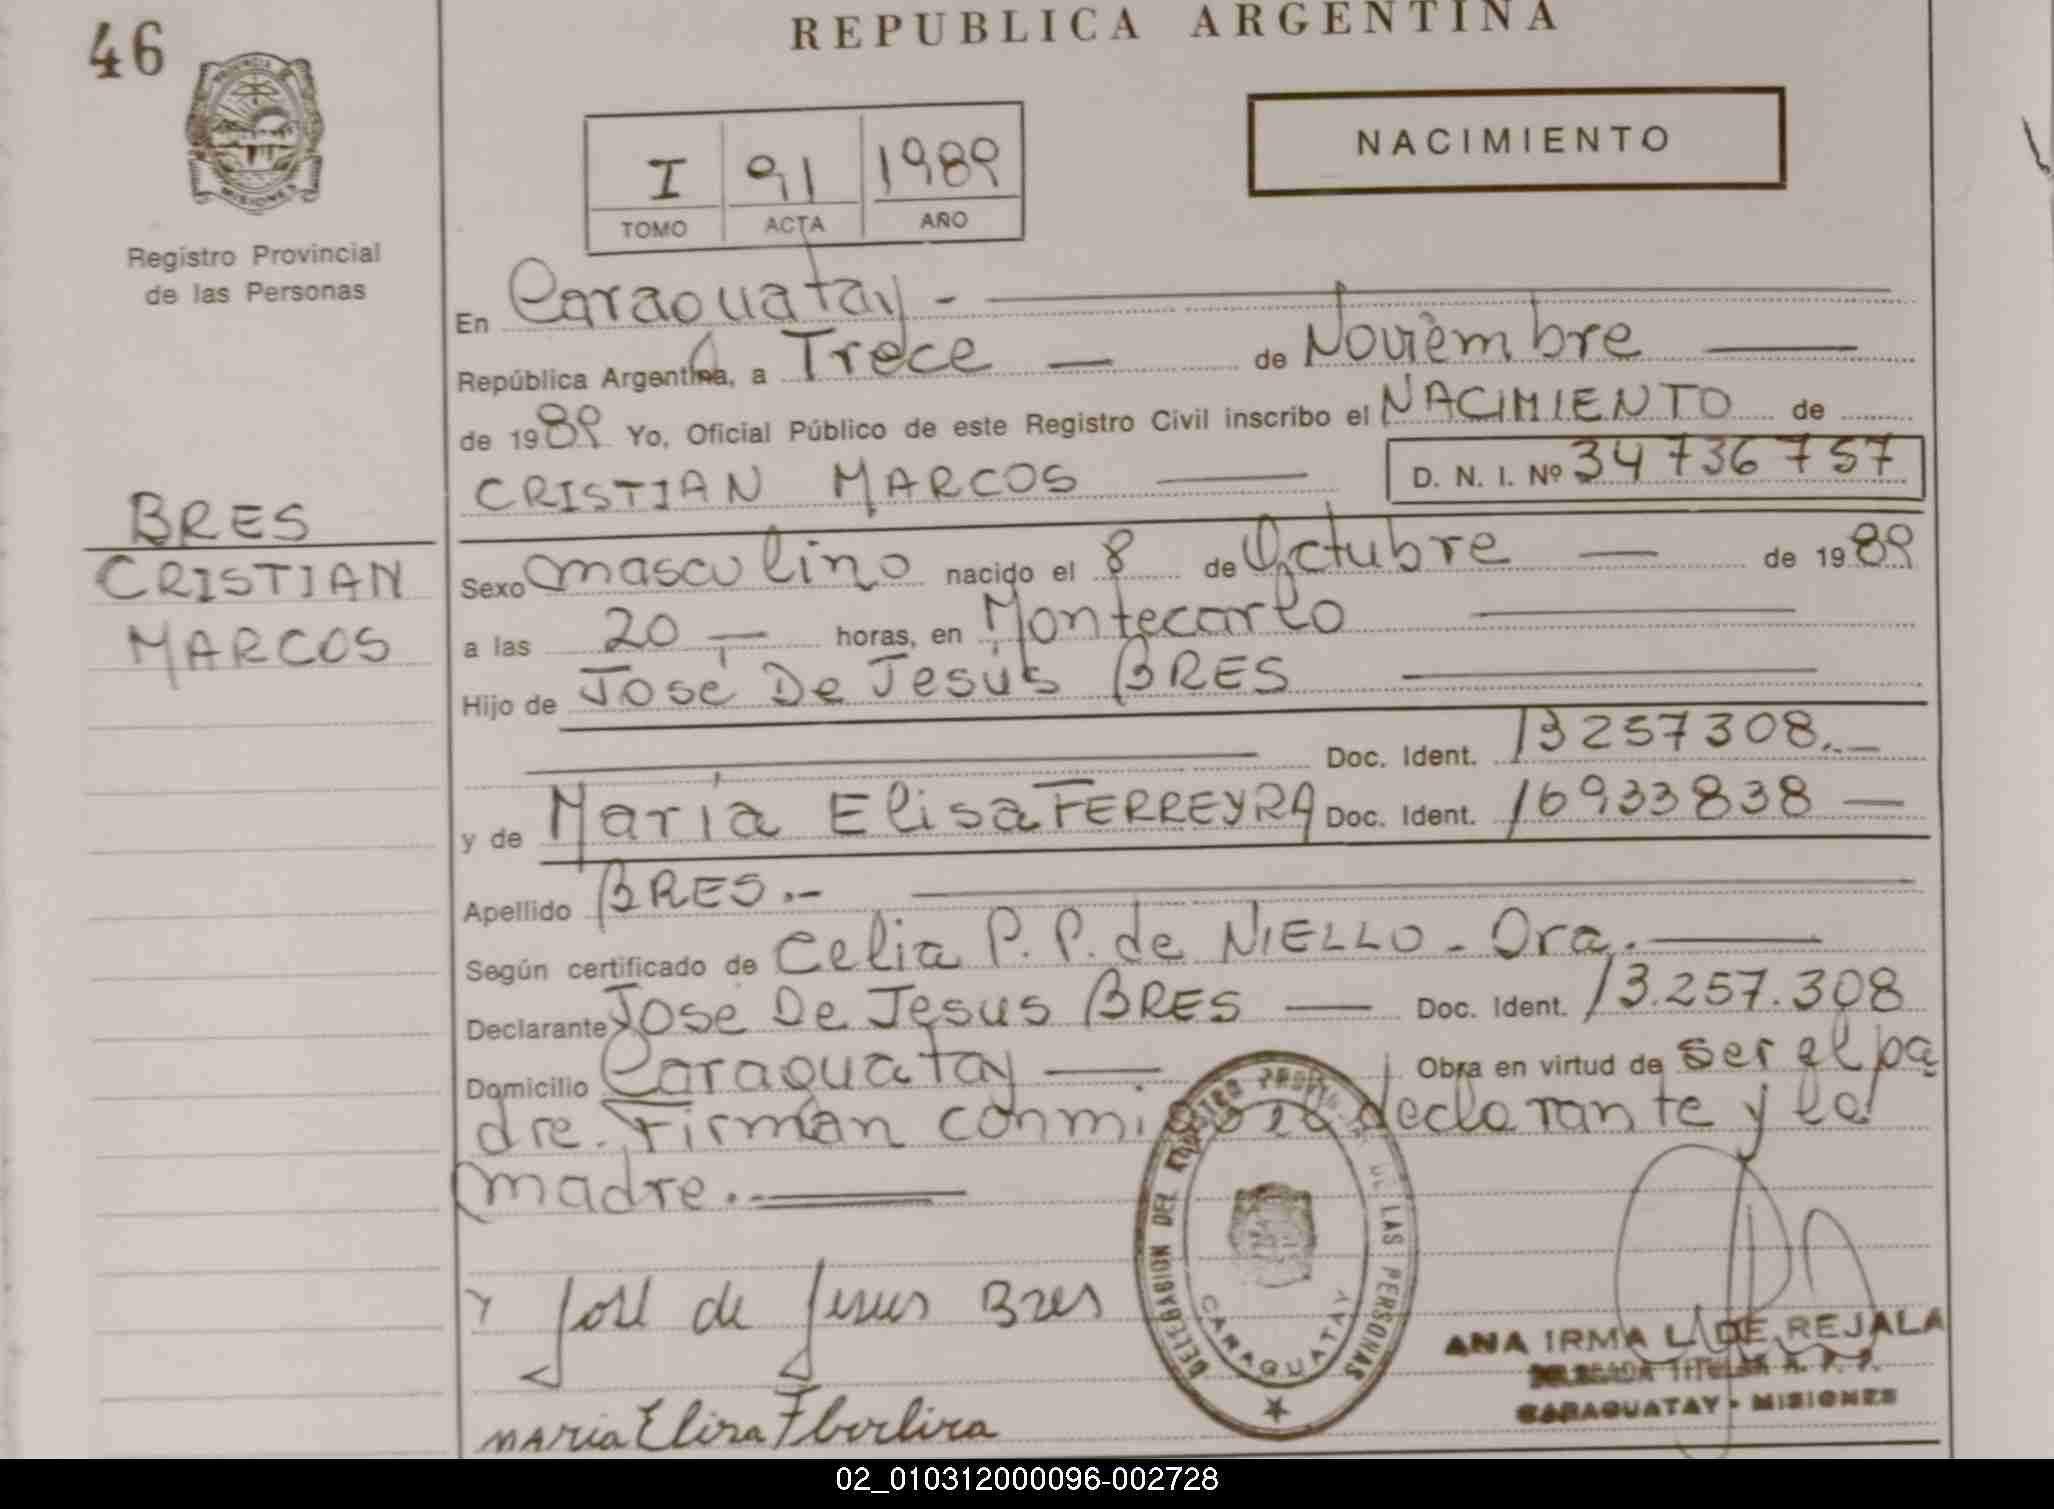 46
REPUBLICA ARGENTINA
PROVINCIA DE
MISIONES
Registro Provincial
de las Personas
NACIMIENTO
I 91 1989
TOMO ACTA AÑO
En Caraguatay -
República Argentina, a Trece de Noviembre
de 1989 Yo, Oficial Público de este Registro Civil inscribo el NACIMIENTO de
CRISTIAN MARCOS D. N. I. Nº 34736757
BRES
CRISTIAN
MARCOS
Sexo masculino nacido el 8 de Octubre de 1989
a las 20 horas, en Montecarlo
Hijo de José De Jesús BRES
Doc. Ident. 13257308.-
y de María Elisa FERREYRA Doc. Ident. 16933838
Apellido BRES.-
Según certificado de Celia P. P. de NIELLO - Dra.
Declarante Jose De Jesus BRES Doc. Ident. 13.257.308
Domicilio Caraguatay Obra en virtud de ser el pa
dre. Firman conmigo el declarante y la
madre.-
José de Jesus Bres
maria Elisa
DELEGACION DEL REGISTRO PROVINCIAL DE LAS PERSONAS
CARAGUATAY
ANA IRMA L. DE REJALA
DELEGADA TITULAR R. P. P.
CARAGUATAY - MISIONES
02_010312000096-002728